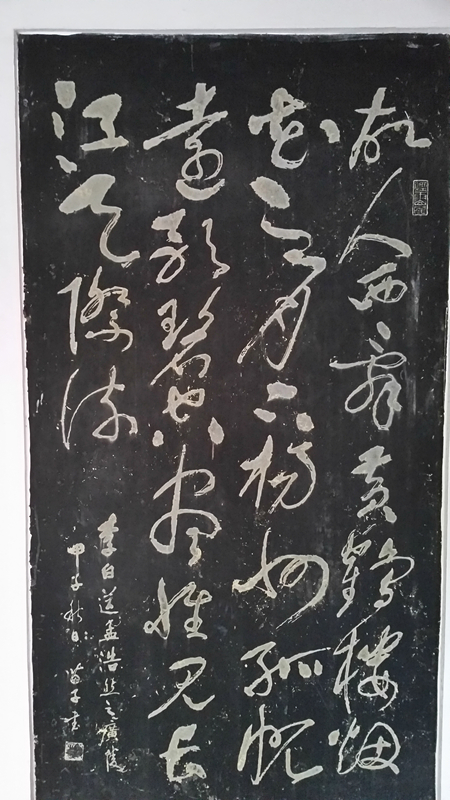 故人西辭黃鶴樓烟
花三月下楊州孤帆
遠影碧空盡惟見長
江天際流
李白送孟浩然之廣陵
甲子秋日 苗子書